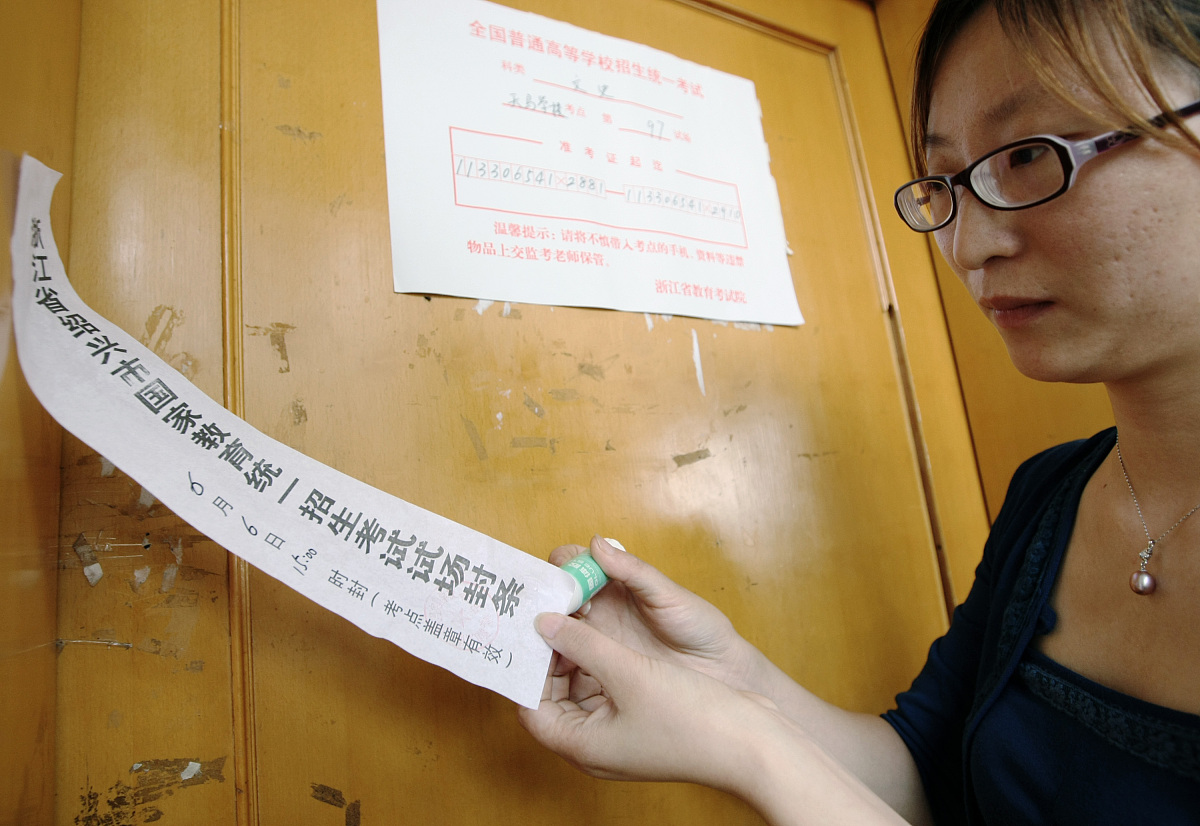 全国普通高等学校招生统一考试
科类 文史
考点 第 97 试场
准考证起讫
113306541×2881—113306541×2910
温馨提示：请将不慎带入考点的手机、资料等违禁
物品上交监考老师保管。
浙江省教育考试院
浙江省绍兴市国家教育统一招生考试试场封条
6月6日15:00时封(考点盖章有效)